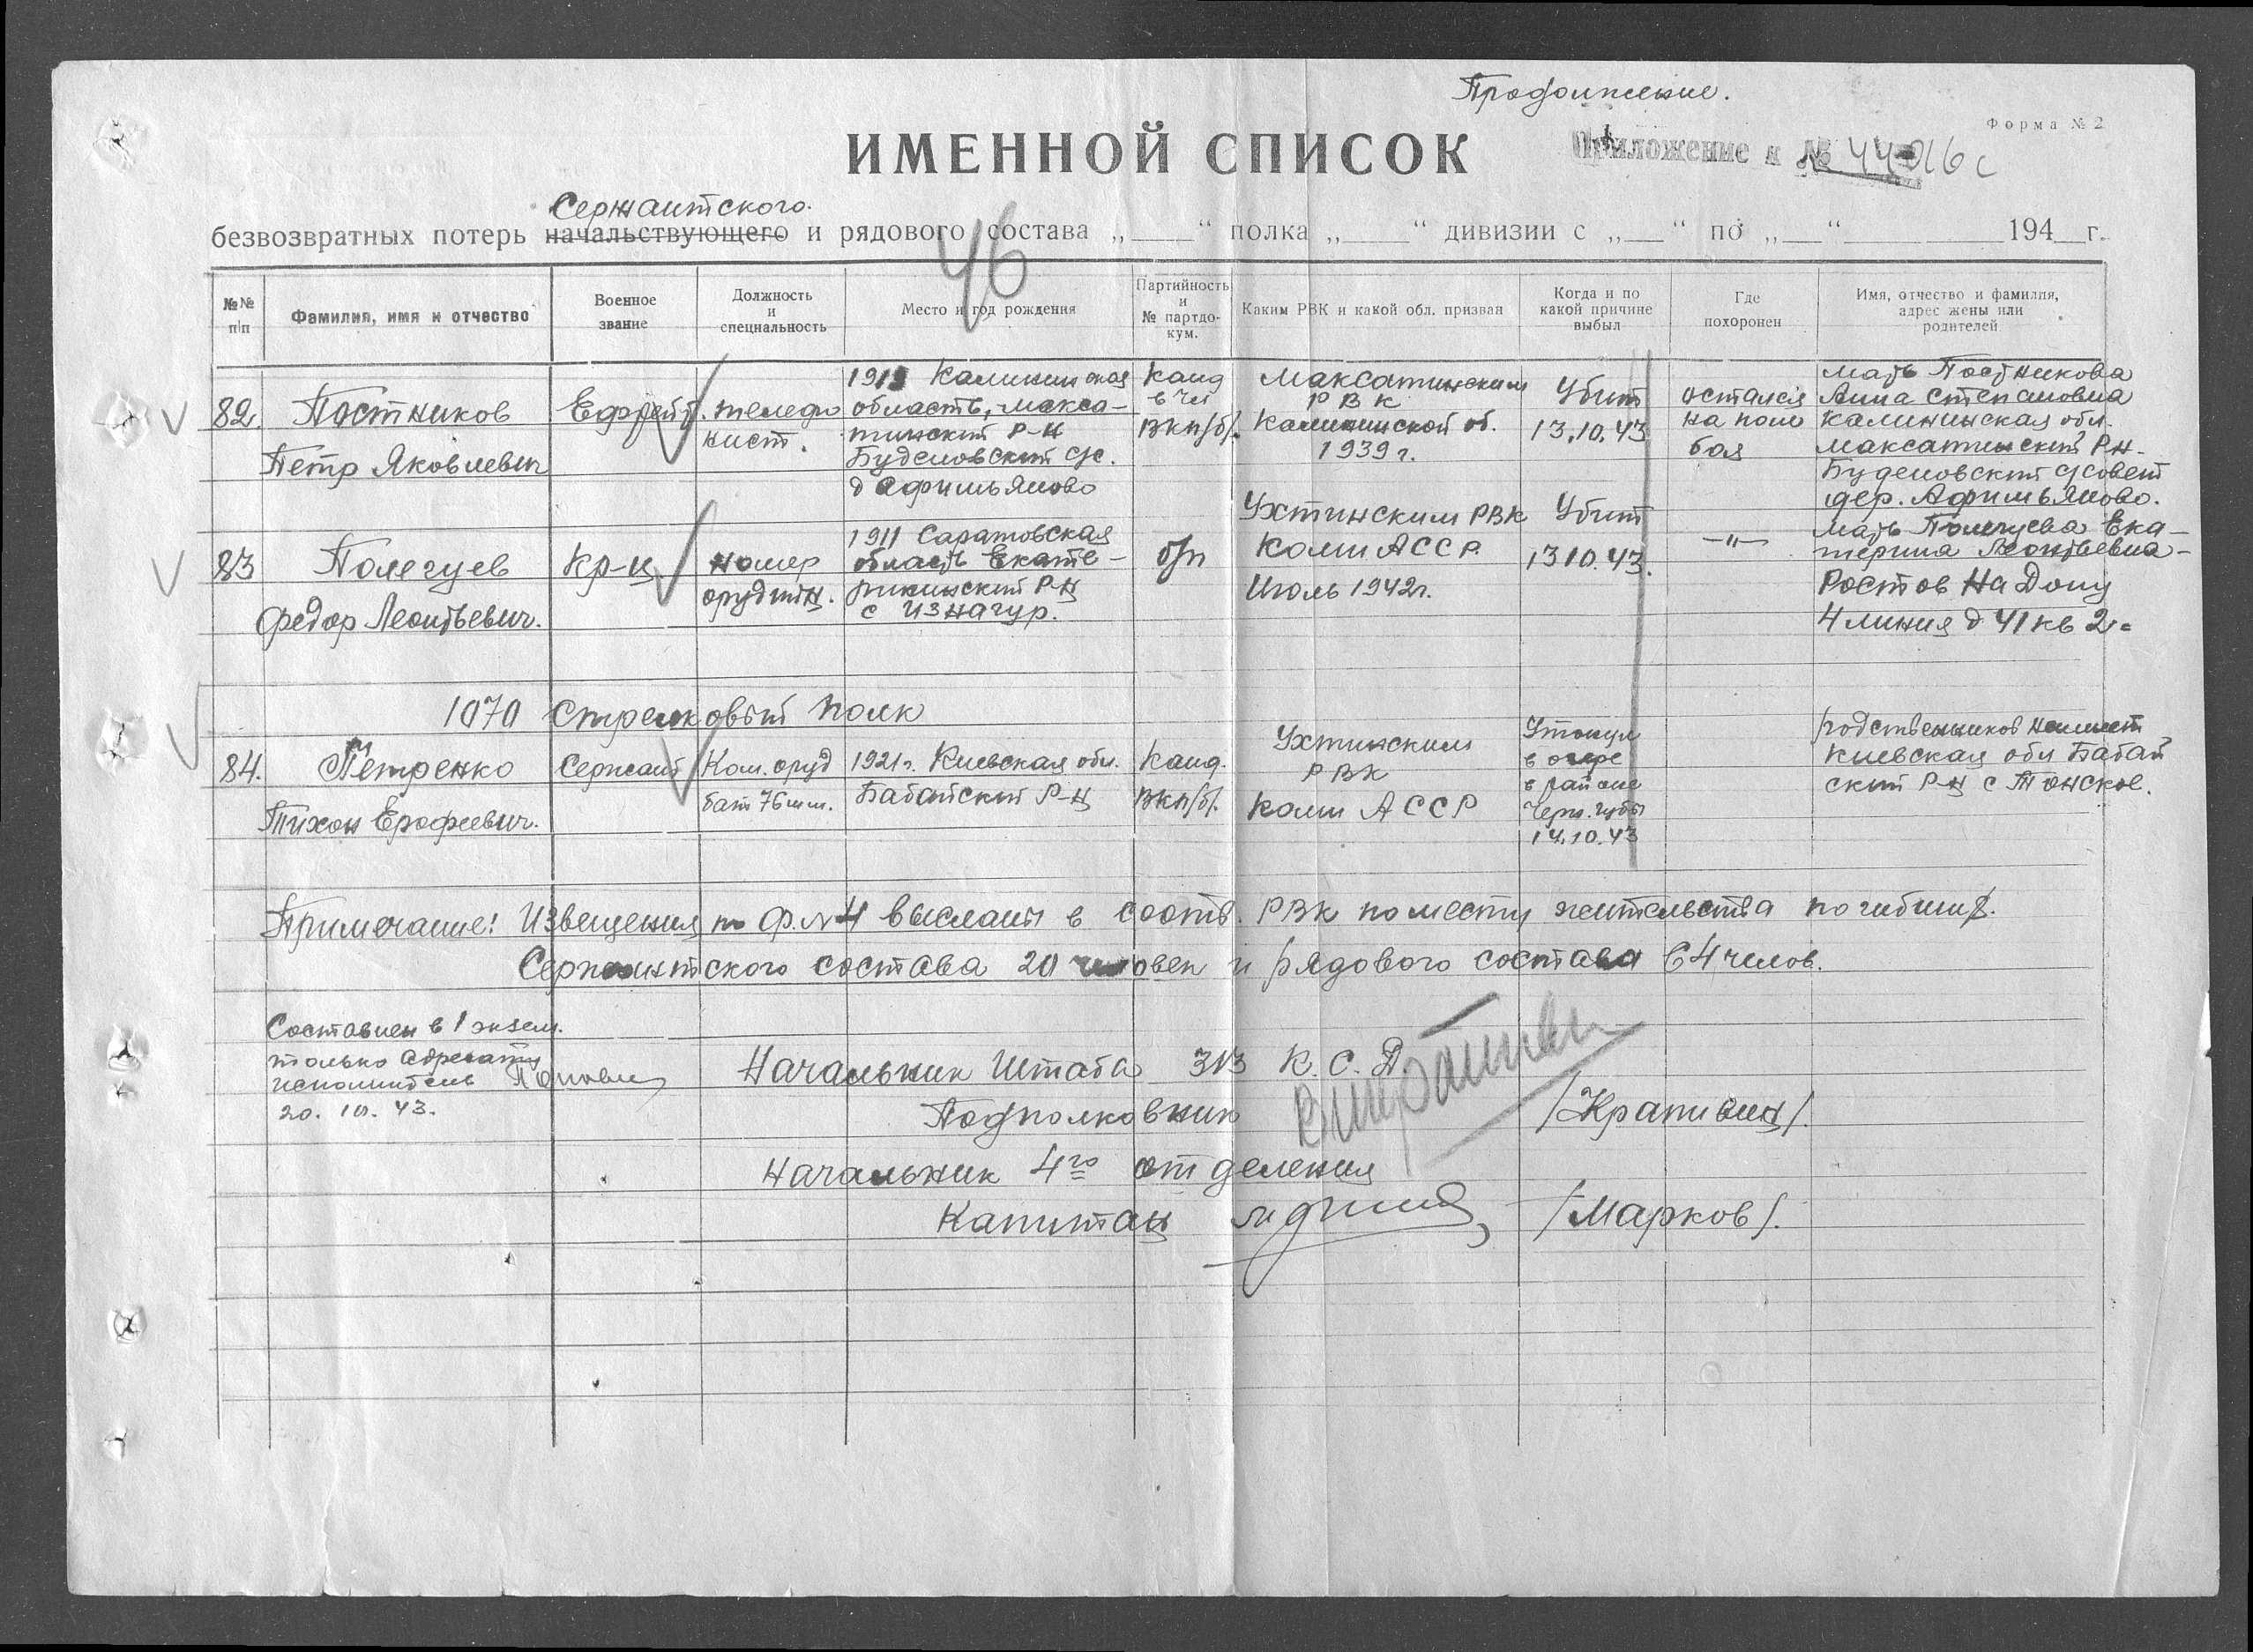 Продолжение.
Форма № 2
ИМЕННОЙ СПИСОК
Приложение к №
Сержантского
безвозвратных потерь начальствующего и рядового состава „____“ полка „____“ дивизии с „__“ по „__“ ________ 194__г.
46
№№ п/п
Фамилия, имя и отчество
Военное звание
Должность и специальность
Место и год рождения
Партийность и № партдокум.
Каким РВК и какой обл. призван
Когда и по какой причине выбыл
Где похоронен
Имя, отчество и фамилия, адрес жены или родителей
82. Постников
Петр Яковлевич
Ефрейт.
телефо
нист.
1919 Калининская
область, Макса-
тинский р-н
Буденовский с/с.
д Афимьяново
Канд
в чл
ВКП/б/.
Максатинским
РВК
Калининской об.
1939 г.
Убит
13.10.43
остался
на поле
боя
Мать Постникова
Анна Степановна
Калининская обл.
Максатинский Р-н-
Буденовский с/совет
дер. Афимьяново.
83 Полегуев
Федор Леонтьевич.
Кр-ц
номер
орудийн.
1911 Саратовская
область Екате-
ринский Р-н
с Изнагур.
б/п
Ухтинским РВК
Коми АССР.
Июль 1942г.
Убит
13.10.43.
-"-
Мать Полегуева Ека-
терина Леонтьевна-
Ростов на Дону
4 линия д 41 кв 2.
1070 стрелковый полк
84. Петренко
Тихон Ерофеевич.
Сержант
Ком. оруд
бат 76 мм.
1921г. Киевская обл.
Бабайский Р-н
Канд.
ВКП/б/.
Ухтинским
РВК
Коми АССР
Утонул
в озере
в районе
Черн. губы
14.10.43
родственников не имеет
Киевская обл Бабай
ский Р-н с Тонское.
Примечание! Извещения по ф.№4 высланы в соотв. РВК по месту жительства погибших.
Сержантского состава 20 человек и рядового состава 64 челов.
Составлен в 1 экзем.
только адресату
исполнитель
20.10.43.
Начальник Штаба 313 К.С.Д.
Подполковник /Крапивин/.
Начальник 4го отделения
Капитан /Марков/.